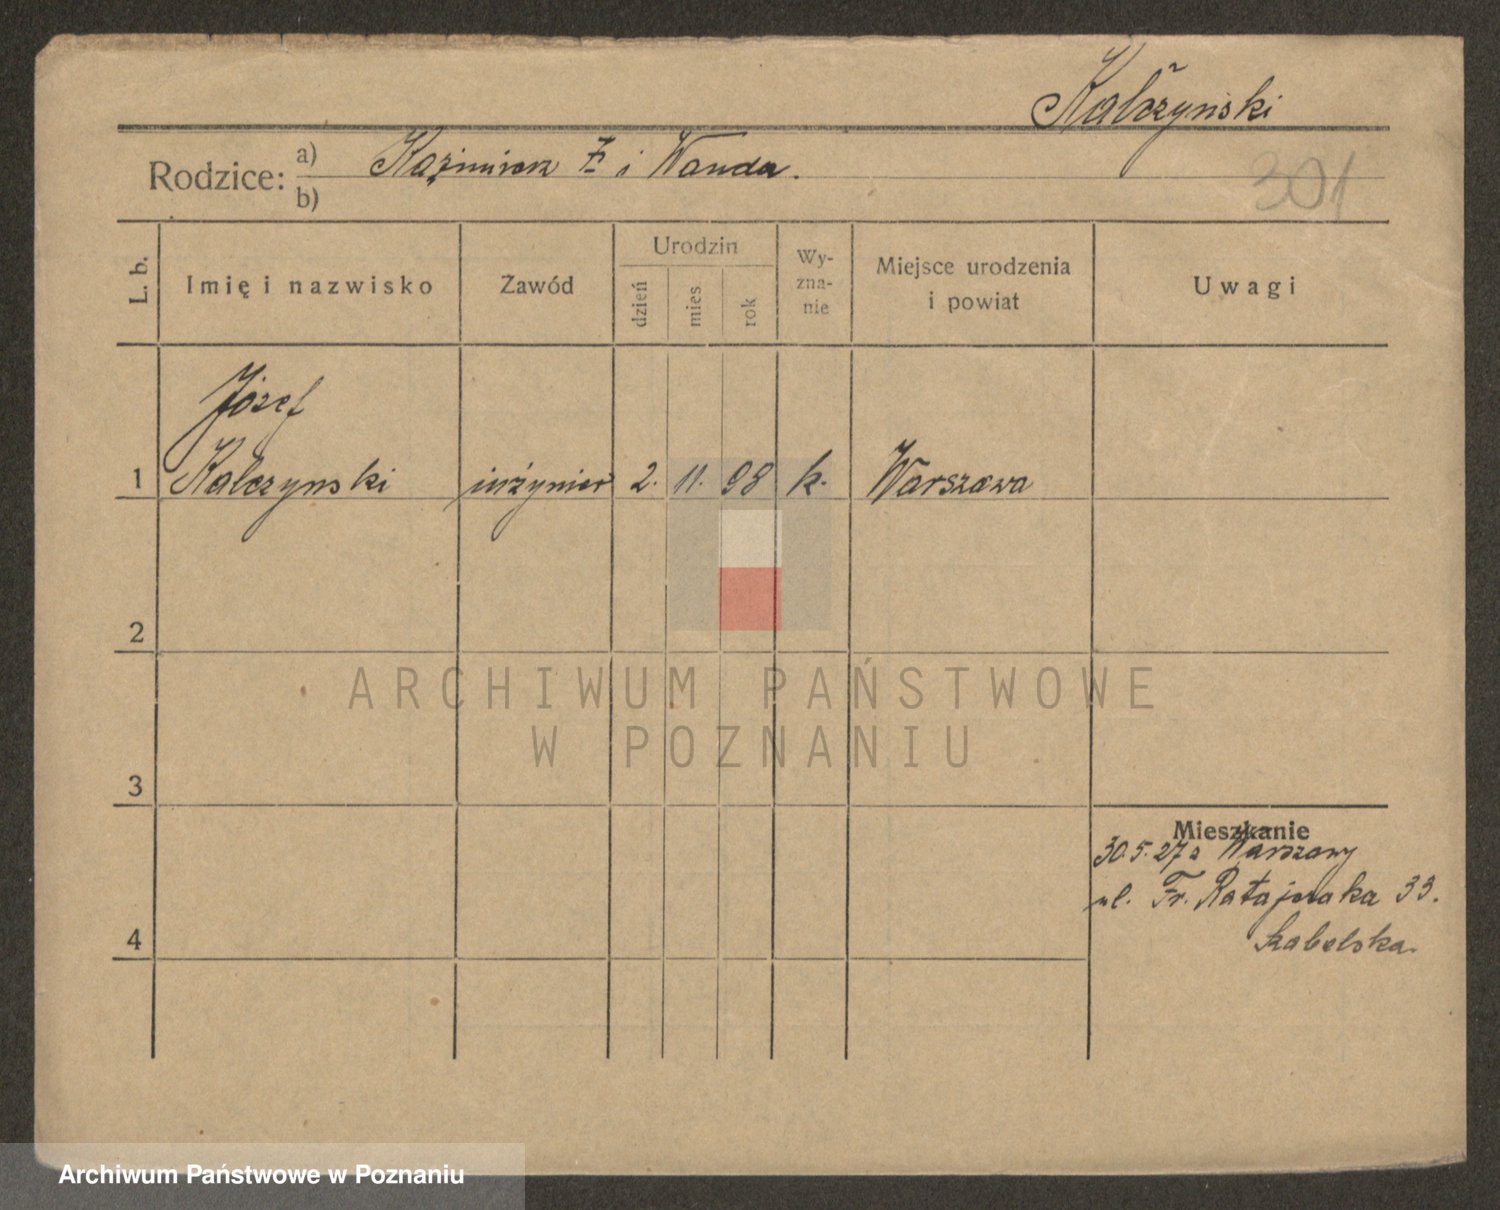 Kalczyński
Rodzice: a) Kazimierz i Wanda.
b)
301
L. b. Imię i nazwisko Zawód Urodzin dzień mies. rok Wy-zna-nie Miejsce urodzenia i powiat Uwagi
Józef
1 Kalczynski inżynier 2. 11. 98 k. Warszawa
2
ARCHIWUM PAŃSTWOWE
W POZNANIU
3
Mieszkanie
30.5.27 z Warszawy
ul. Fr. Ratajczaka 33.
4
Archiwum Państwowe w Poznaniu